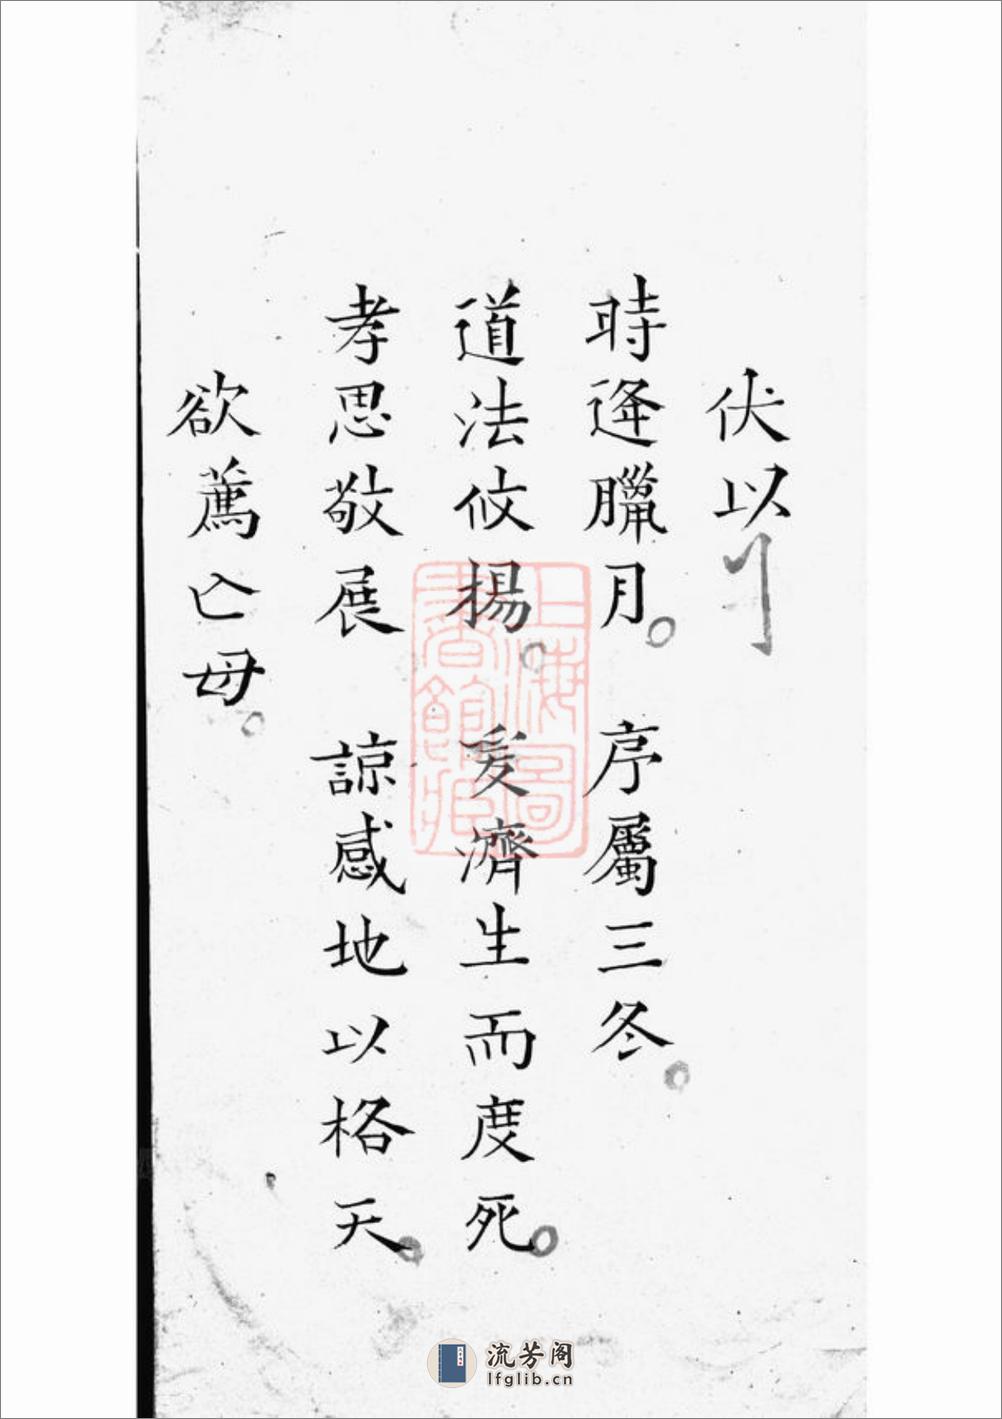 伏以
時逢臘月。序屬三冬。
道法攸揚。爰濟生而度死。
孝思敬展 諒感地以格天。
欲薦亡母。
上海圖書館藏
流芳阁
lfglib.cn